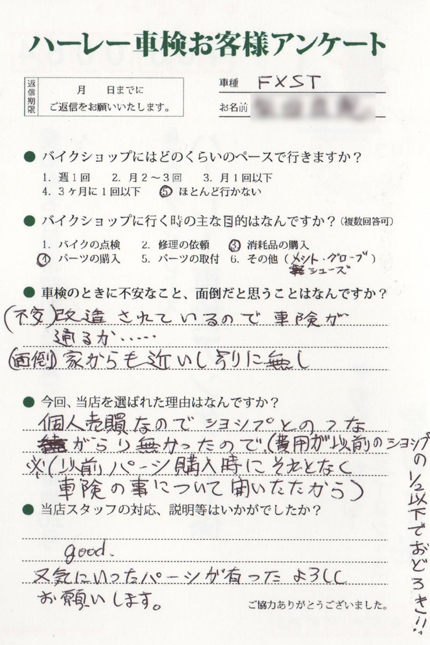 ハーレー車検お客様アンケート
返信期限
月 日までに
ご返信をお願いいたします。
車種 FXST
お名前
● バイクショップにはどのくらいのペースで行きますか?
1. 週1回 2. 月2〜3回 3. 月1回以下
4. 3ヶ月に1回以下 ⑤ ほとんど行かない
● バイクショップに行く時の主な目的はなんですか?(複数回答可)
1. バイクの点検 2. 修理の依頼 ③ 消耗品の購入
④ パーツの購入 5. パーツの取付 6. その他(メント・グローブ)
シューズ
● 車検のときに不安なこと、面倒だと思うことはなんですか?
(不安)改造されているので車険が
通るか……
(面倒)家からも近いし 別に無し
● 今回、当店を選ばれた理由はなんですか?
個人売買なのでショップとのつな
がらり無かったので、(費用が以前のショップ
の1/2以下でおどろき!!
※(以前パーツ購入時にそれとなく
車険の事について聞いたたから)
● 当店スタッフの対応、説明等はいかがでしたか?
good.
又気にいったパーツが有ったよろしく
お願いします。
ご協力ありがとうございました。